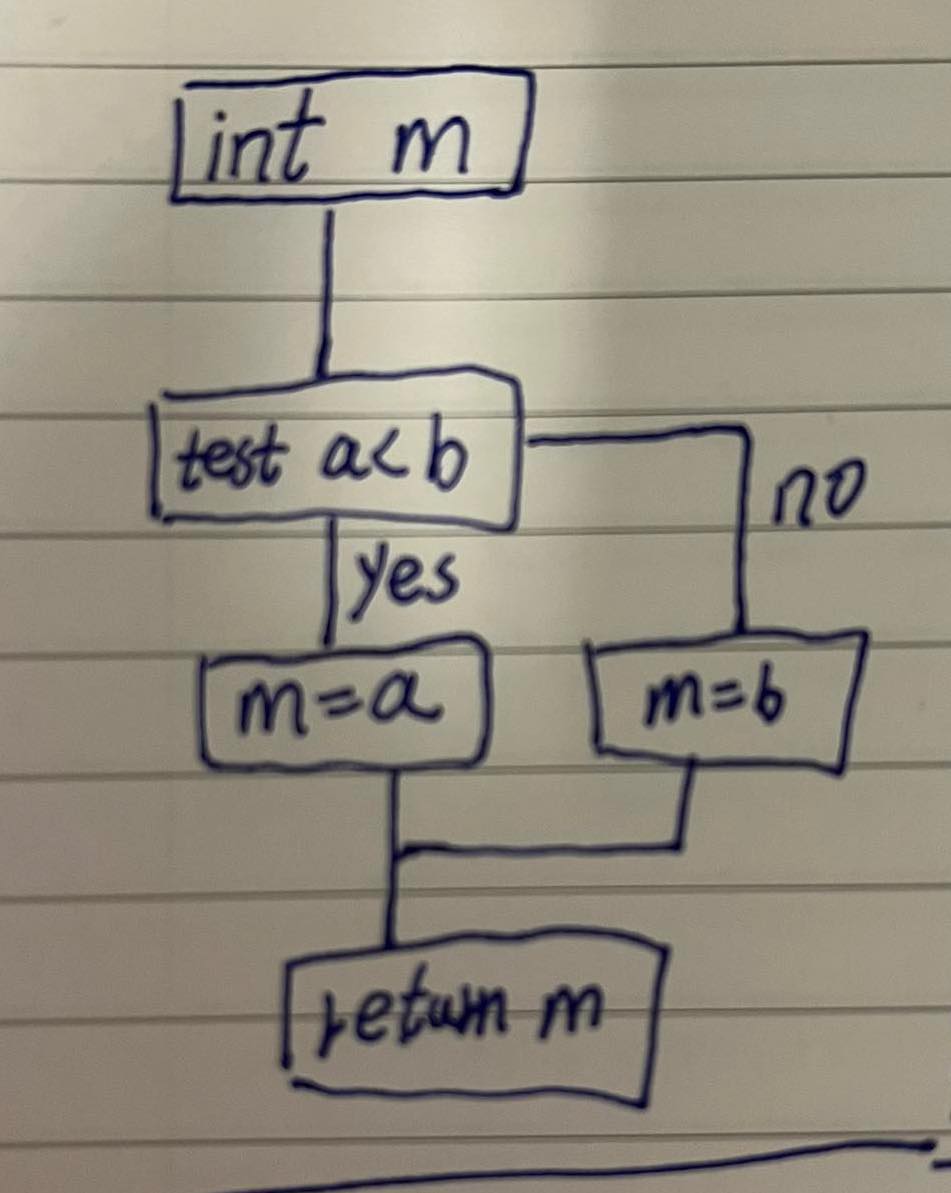 int m
test a<b
no
yes
m=a
m=b
return m